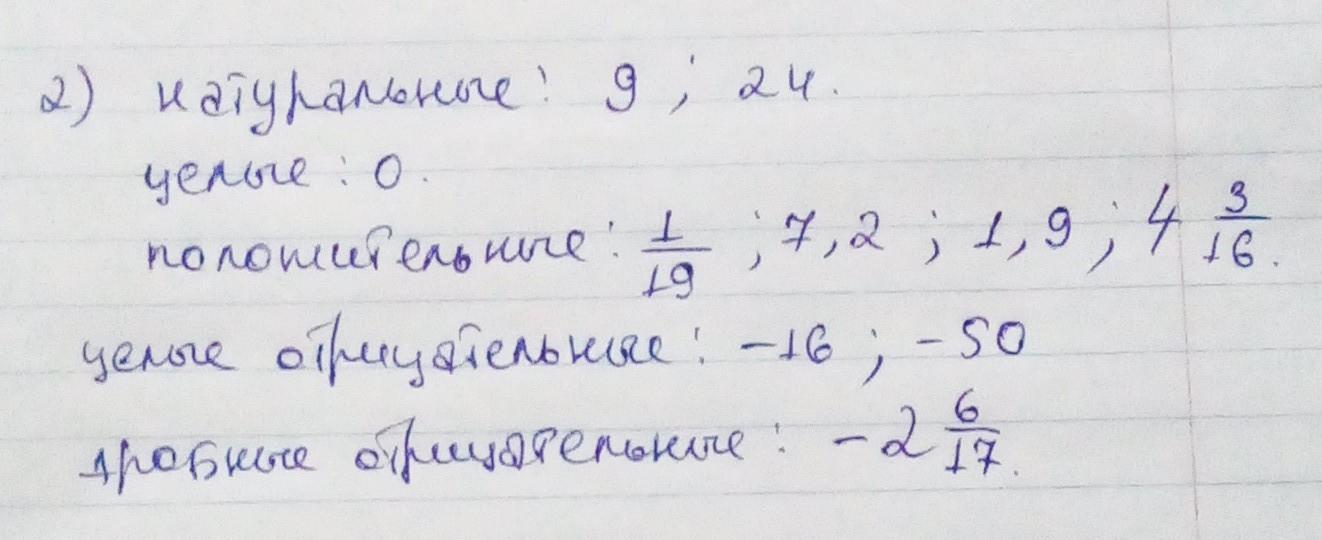 2) натуральные: 9; 24.
целые: 0.
положительные: 1/19; 7,2; 1,9; 4 3/16.
целые отрицательные: -16; -50
дробные отрицательные: -2 6/17.